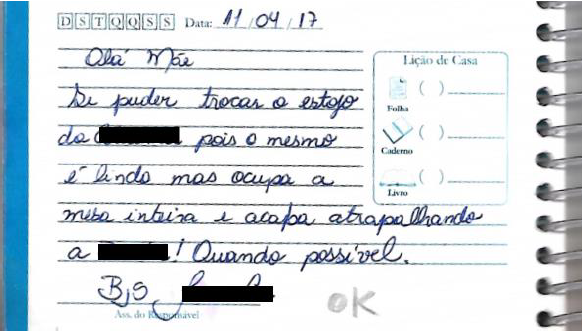 D S T Q Q S S Data: 11 / 04 / 17
Olá Mãe
Lição de Casa
Se puder trocar o estojo
( )
Folha
da pois o mesmo
( )
Caderno
é lindo mas ocupa a
( )
Livro
mesa inteira e acapa atrapalhando
a ! Quando possível.
Bjs
OK
Ass. do Responsável